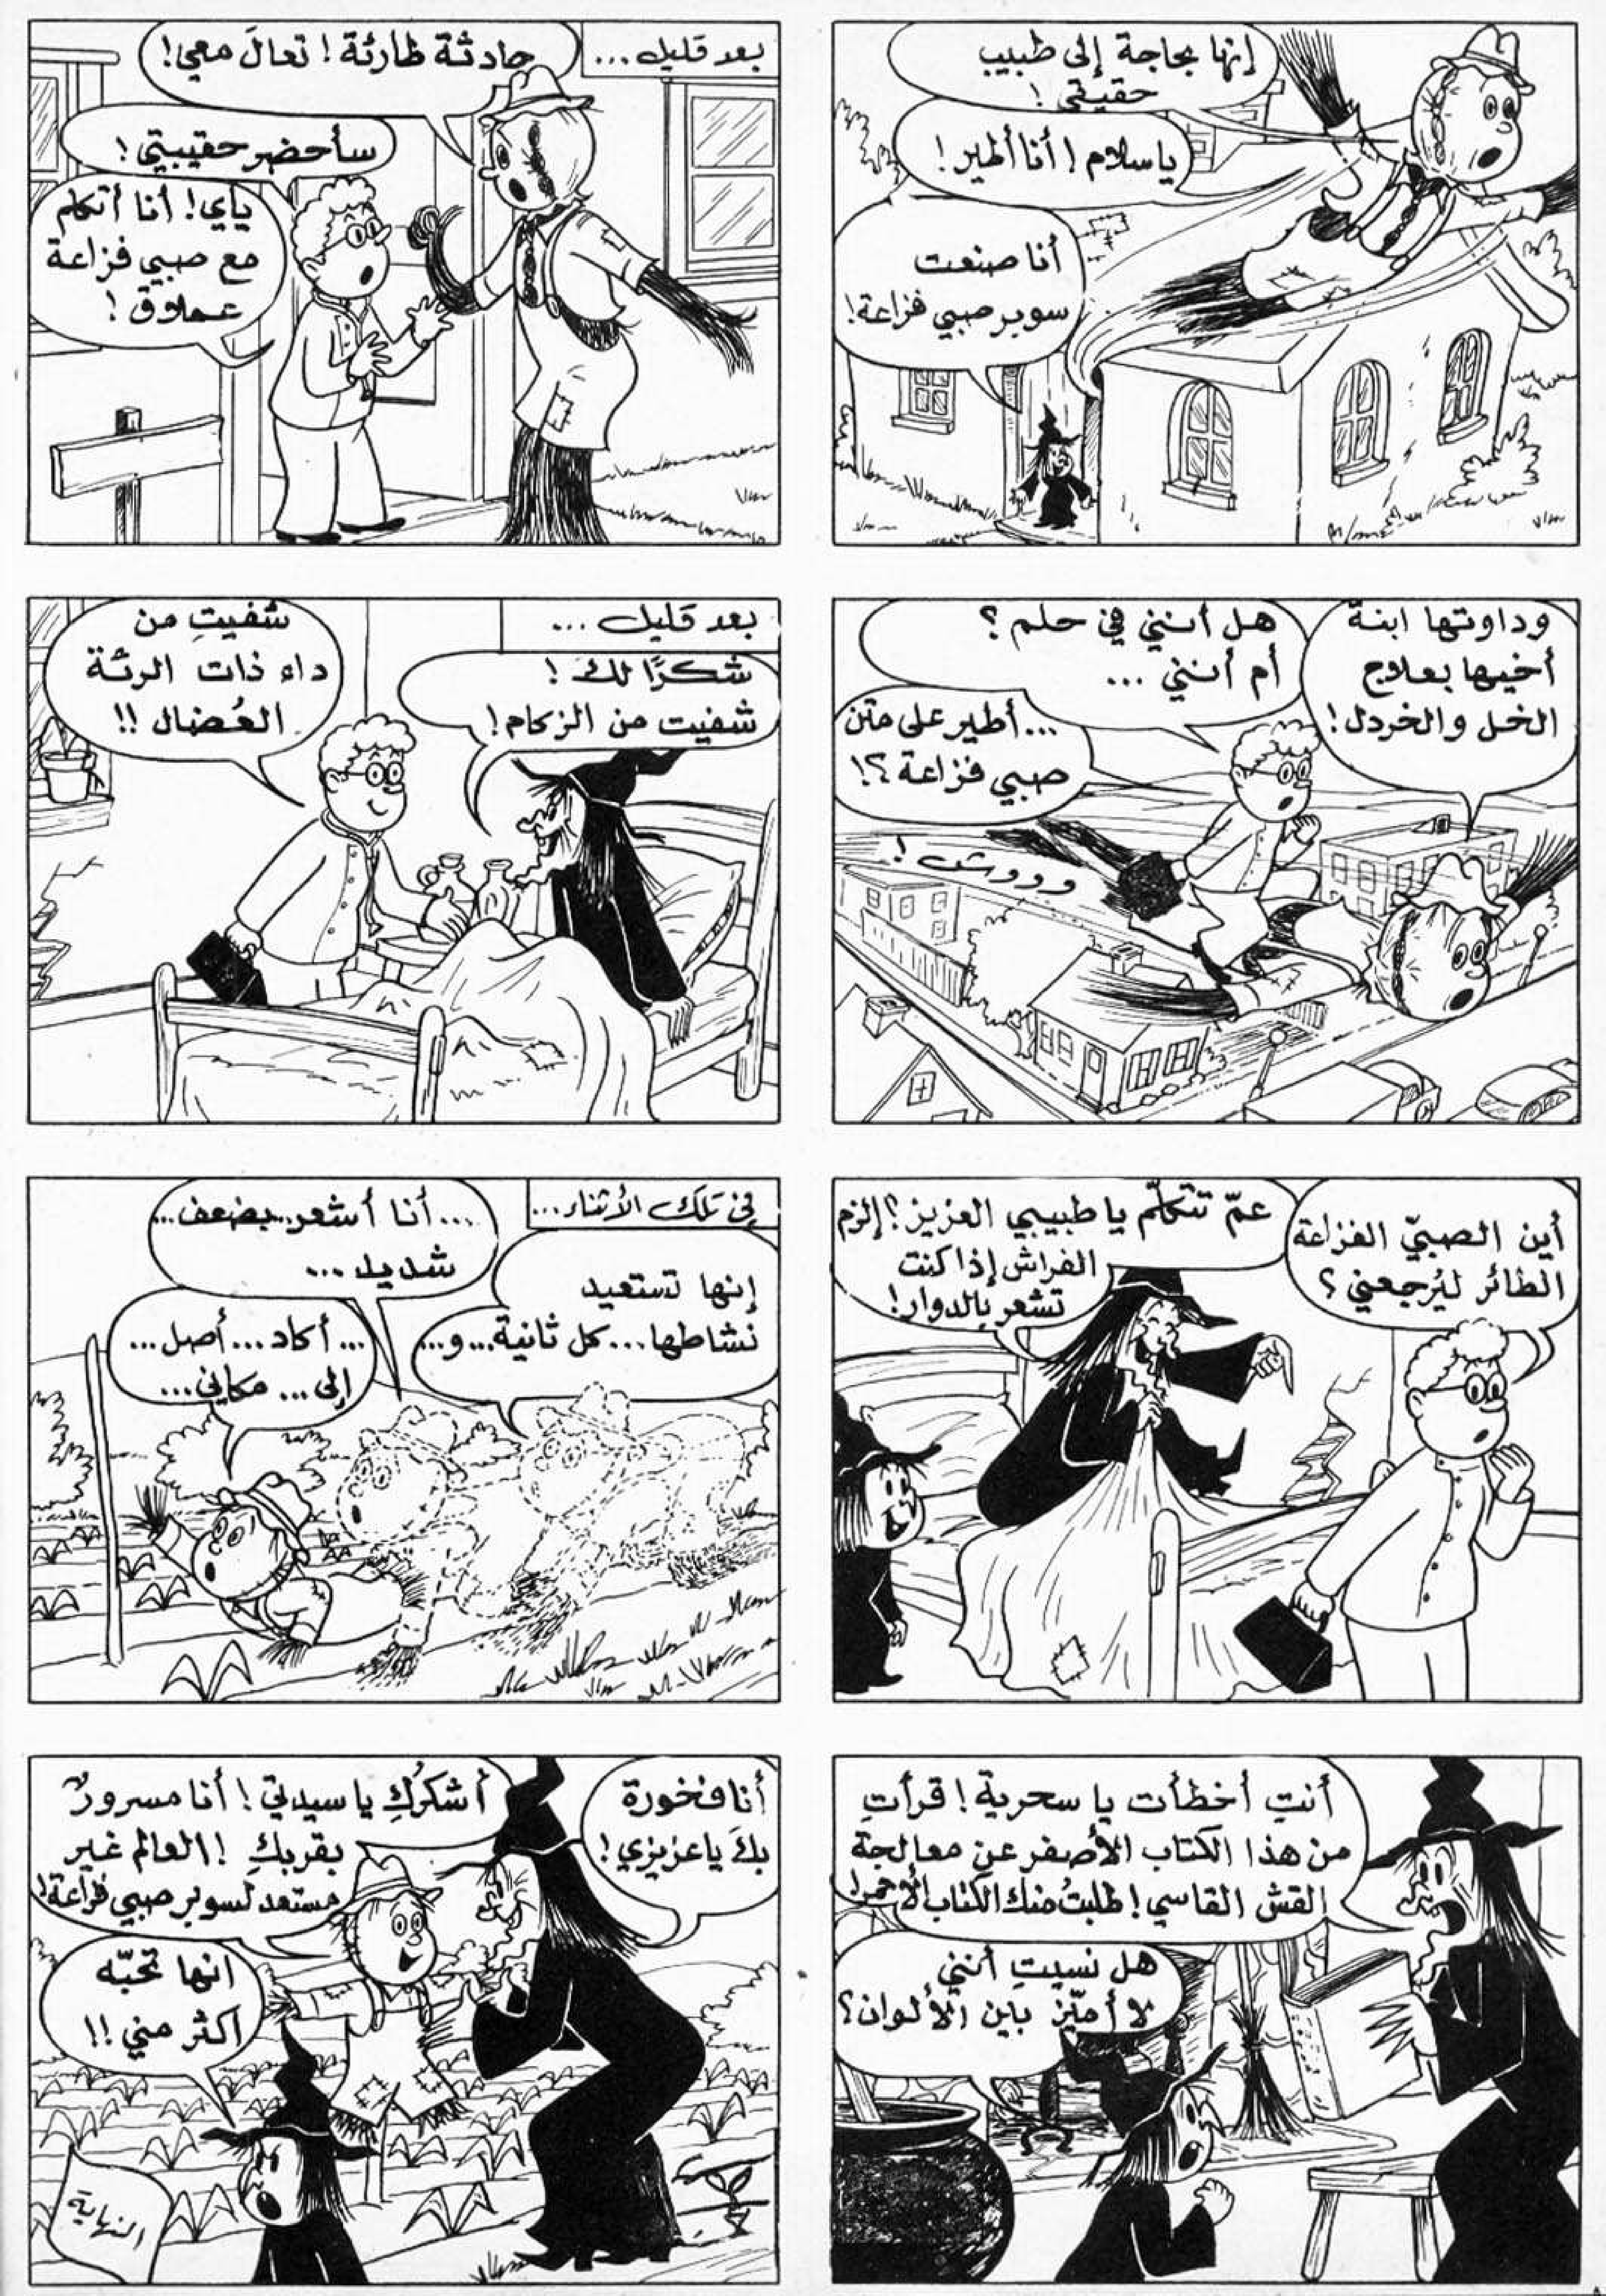 إنها بحاجة إلى طبيب
حقيقي !
يا سلام ! أنا أطير !
أنا صنعت
سوبر صبي فزاعة !
بعد قليل ...
حادثة طارئة ! تعالَ معي !
سأحضر حقيبتي !
ياي ! أنا أتكلم
مع صبي فزاعة
عملاق !
وداوتها ابنة
أخيها بعلاج
الخل والخردل !
هل أنني في حلم ؟
أم أنني ...
... أطير على متن
صبي فزاعة ؟!
وووش !
بعد قليل ...
شكرًا لك !
شفيت من الزكام !
شفيتِ من
داء ذات الرئة
العُضال !!
أين الصبيّ الفزاعة
الطائر ليُرجعني ؟
عمّ تتكلّم يا طبيبي العزيز ؟ إلزم
الفراش إذا كنت
تشعر بالدوار !
في تلك الأثناء ...
إنها تستعيد
نشاطها ... كل ثانية ... و ...
... أنا أشعر .. بضعف ...
شديد ...
... أكاد ... أصل ...
إلى ... مكاني ...
أنتِ أخطأت يا سحرية ! قرأتِ
من هذا الكتاب الأصفر عن معالجة
القش القاسي ! طلبتُ منك الكتاب الأحمر !
هل نسيتِ أنني
لا أميّز بين الألوان ؟
أنا فخورة
بكَ يا عزيزي !
أشكرُكِ يا سيدتي ! أنا مسرورٌ
بقربكِ ! العالم غير
مستعد لسوبر صبي فزاعة !
انها تحبّه
اكثر مني !!
النهاية